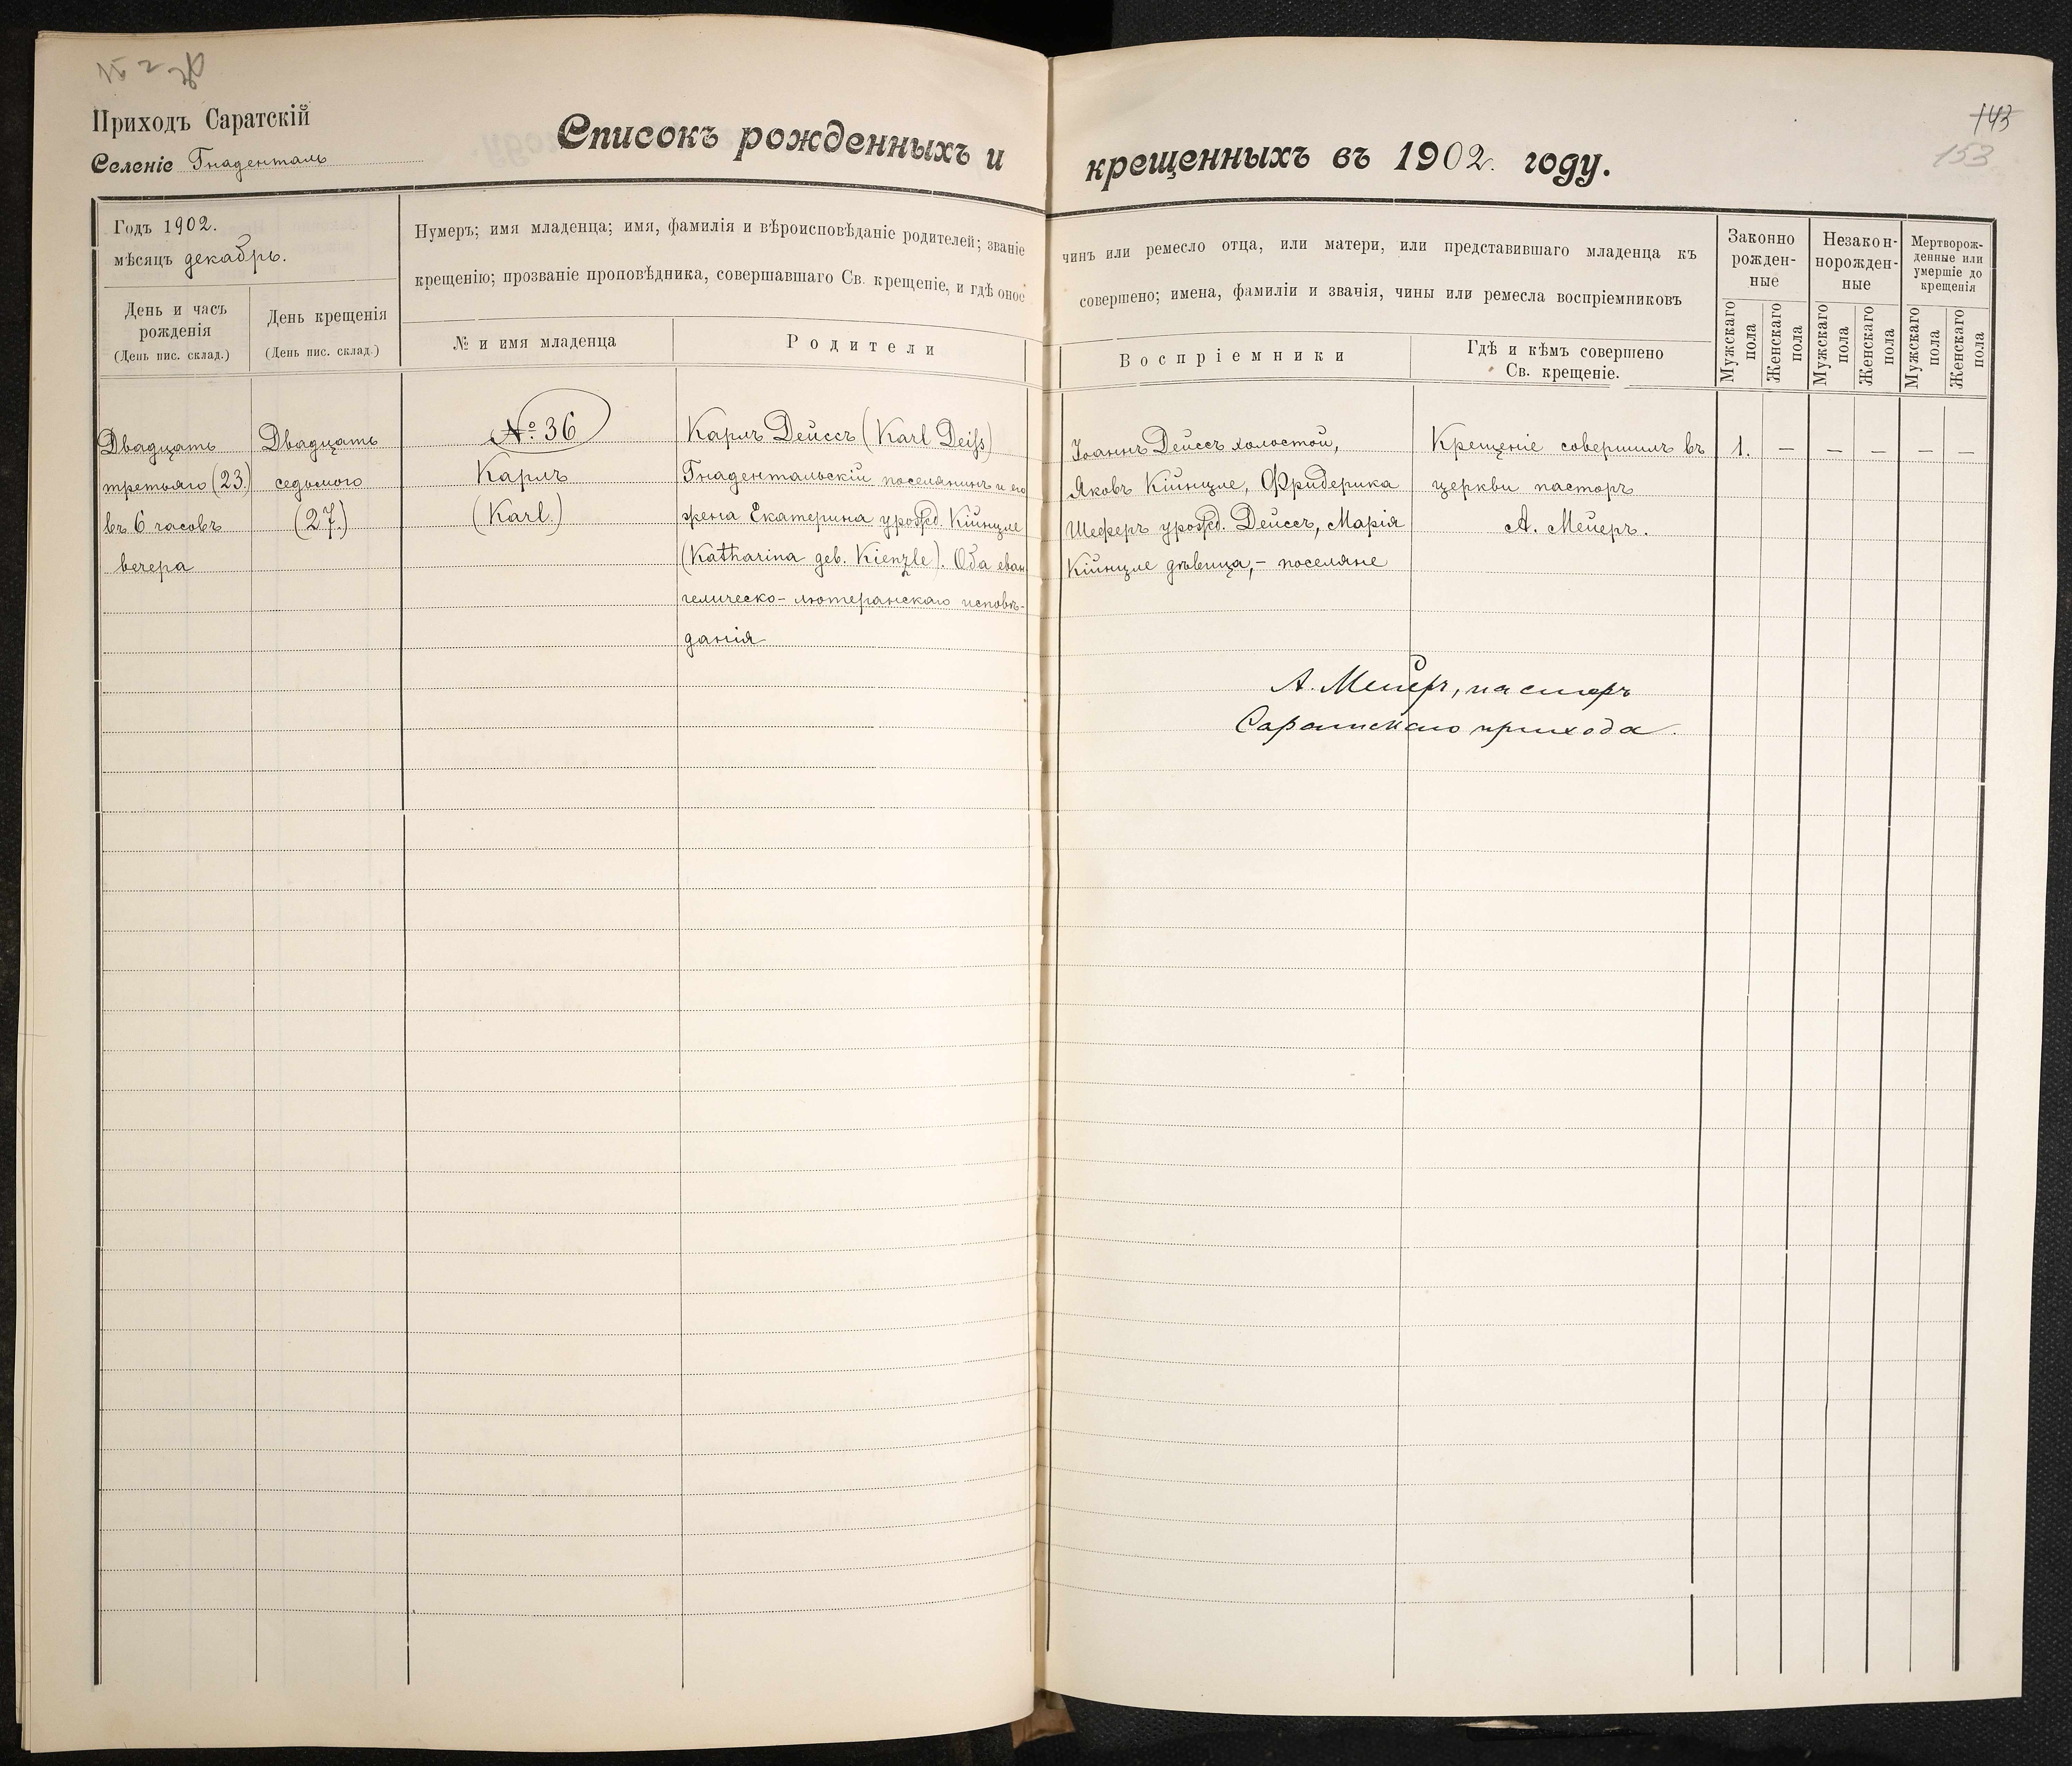 № 2
Приходъ Саратскій
Селеніе Гнаденталь
Списокъ рожденныхъ и
крещенныхъ въ 1902. году.
143
153
Годъ 1902.
мѣсяцъ декабрь.
День и часъ
рожденія
(День пис. склад.)
День крещенія
(День пис. склад.)
Нумеръ; имя младенца; имя, фамилія и вѣроисповѣданіе родителей; званіе
крещенію; прозваніе проповѣдника, совершавшаго Св. крещеніе, и гдѣ оное
№ и имя младенца
Родители
чинъ или ремесло отца, или матери, или представившаго младенца къ
совершено; имена, фамиліи и званія, чины или ремесла воспріемниковъ
Воспріемники
Гдѣ и кѣмъ совершено
Св. крещеніе.
Законно
рожден-
ные
Незакон-
норожден-
ные
Мертворож-
денные или
умершіе до
крещенія
Мужскаго
пола
Женскаго
пола
Мужскаго
пола
Женскаго
пола
Мужскаго
пола
Женскаго
пола
Двадцать
третьяго (23.)
въ 6 часовъ
вечера
Двадцать
седьмого
(27.)
№ 36
Карлъ
(Karl.)
Карлъ Дейссъ (Karl Deiß)
Гнадентальскій поселянинъ и его
жена Екатерина урожд. Кіинцле
(Katharina geb. Kienzle). Оба еван
гелическо-лютеранскаго исповѣ-
данія
Іоаннъ Дейссъ холостой,
Яковъ Кіинцле, Фридерика
Шеферъ урожд. Дейссъ, Марія
Кіинцле дѣвица, – поселяне
Крещеніе совершилъ въ
церкви пасторъ
А. Мейеръ.
1. – – – – –
А. Мейеръ, пасторъ
Саратскаго прихода.